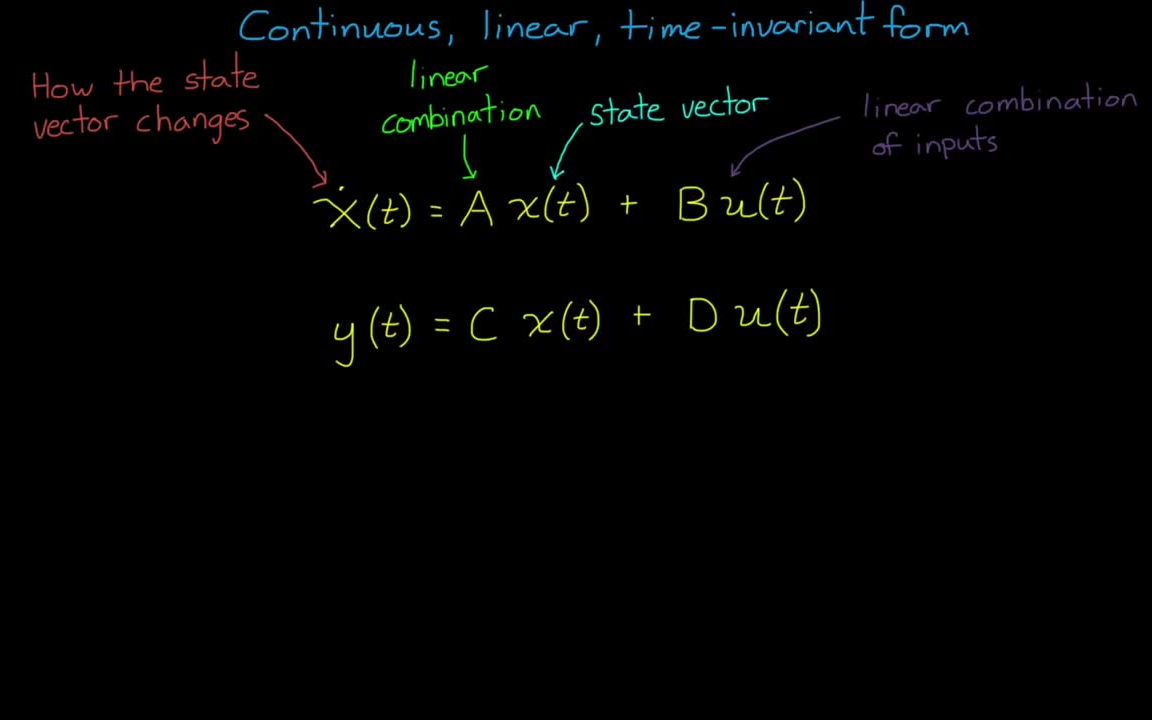 Continuous, linear, time-invariant form
How the state
vector changes
linear
combination
state vector
linear combination
of inputs
ẋ(t) = A x(t) + B u(t)
y(t) = C x(t) + D u(t)